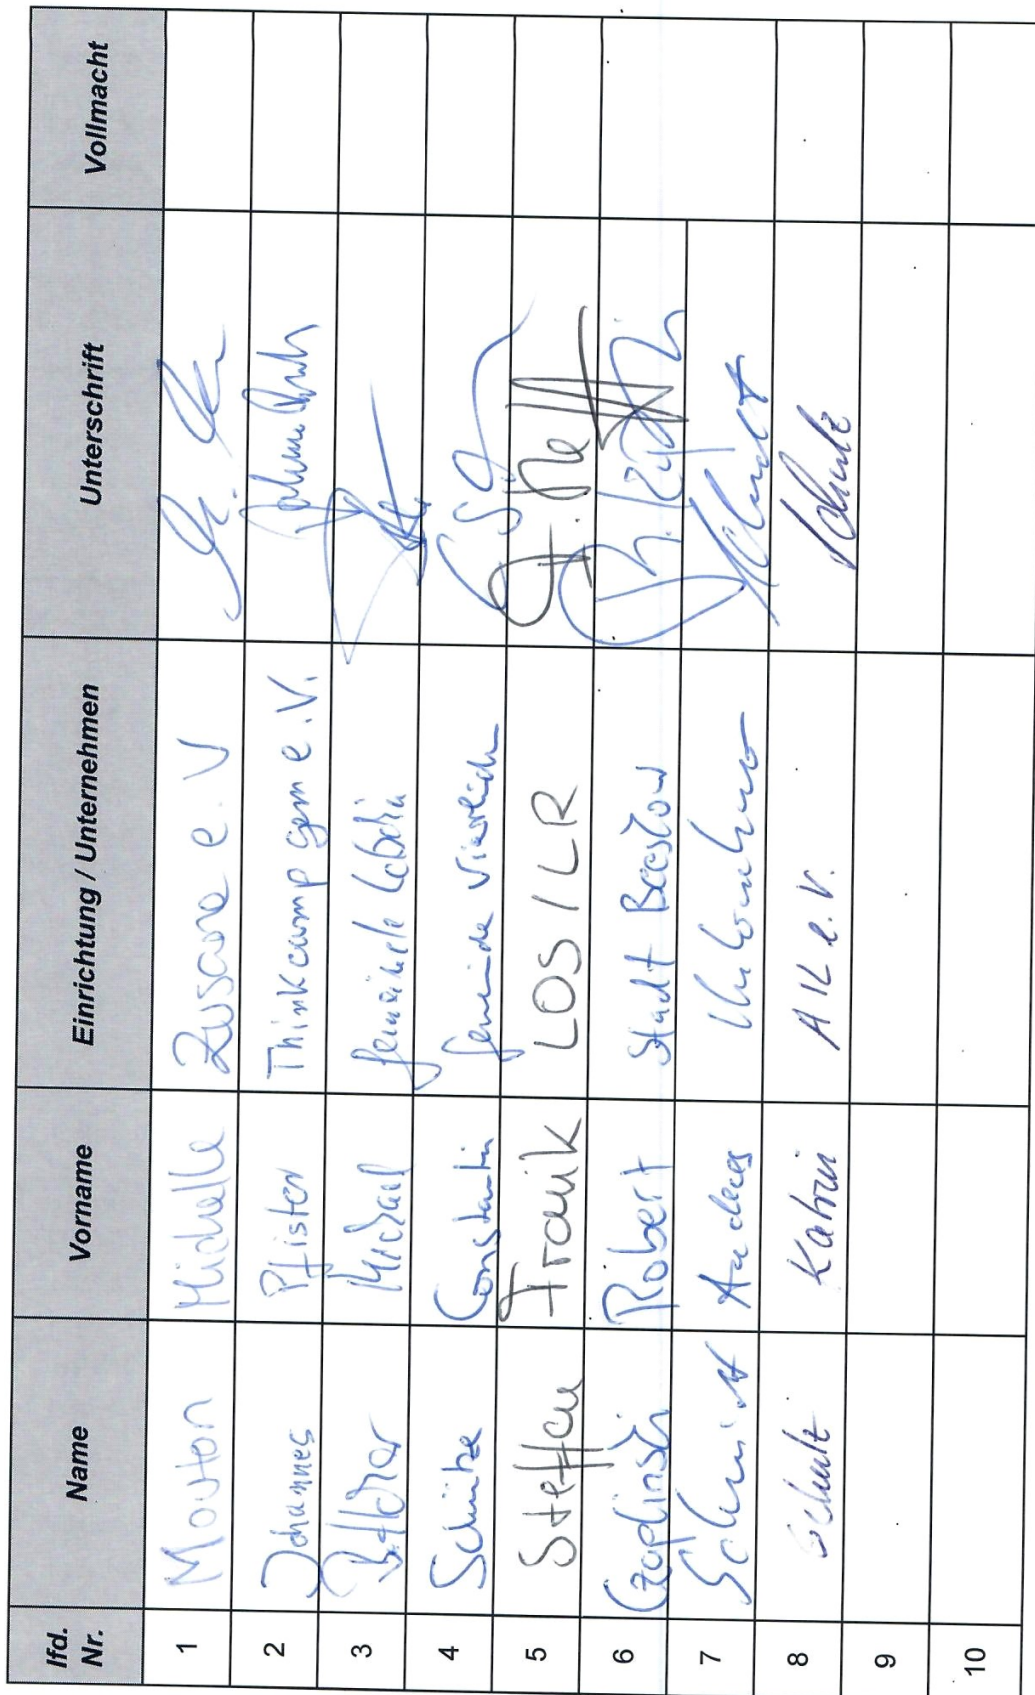 lfd. Nr. Name Vorname Einrichtung / Unternehmen Unterschrift Vollmacht
1 Mouton Michelle Zuscare e.V
2 Johannes Pfister Thinkcamp gem e.V.
3 Böttcher Michael Gemeinde
4 Schütze Constantin Gemeinde
5 Steffen Frank LOS / LR
6 Czaplinski Robert Stadt Beeskow
7 Schmidt Andreas
8 Schulz Katrin AIL e.V. Schulz
9
10